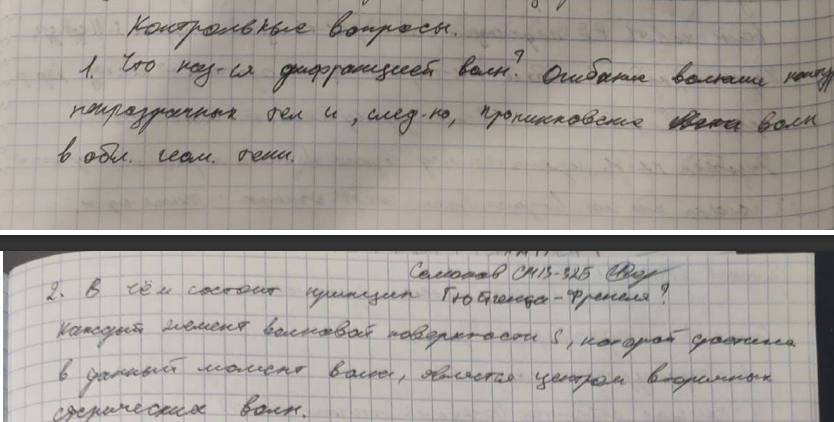 Контрольные вопросы.
1. Что наз-ся дифракцией волн? Огибание волнами контур
непрозрачных тел и, след-но, проникновение волн
в обл. геом. тени.
Самонов СМ13-32Б
2. В чём состоит принцип Гюйгенса-Френеля?
Каждый элемент волновой поверхности S, которой достигла
в данный момент волна, является центром вторичных
сферических волн.